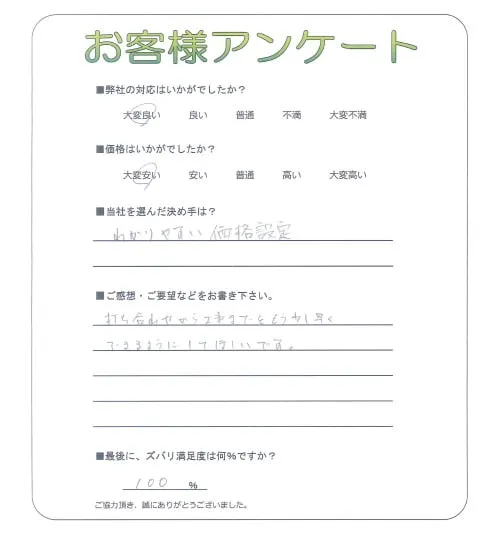 お客様アンケート
■弊社の対応はいかがでしたか？
大変良い 良い 普通 不満 大変不満
■価格はいかがでしたか？
大変安い 安い 普通 高い 大変高い
■当社を選んだ決め手は？
わかりやすい価格設定
■ご感想・ご要望などをお書き下さい。
打ち合わせから工事までをもう少し早く
できるようにしてほしいです。
■最後に、ズバリ満足度は何％ですか？
100 ％
ご協力頂き、誠にありがとうございました。